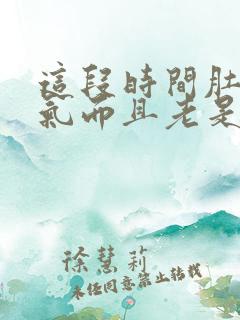 這段時間肚
氣而且老是
徐慧莉
未經同意禁止轉載